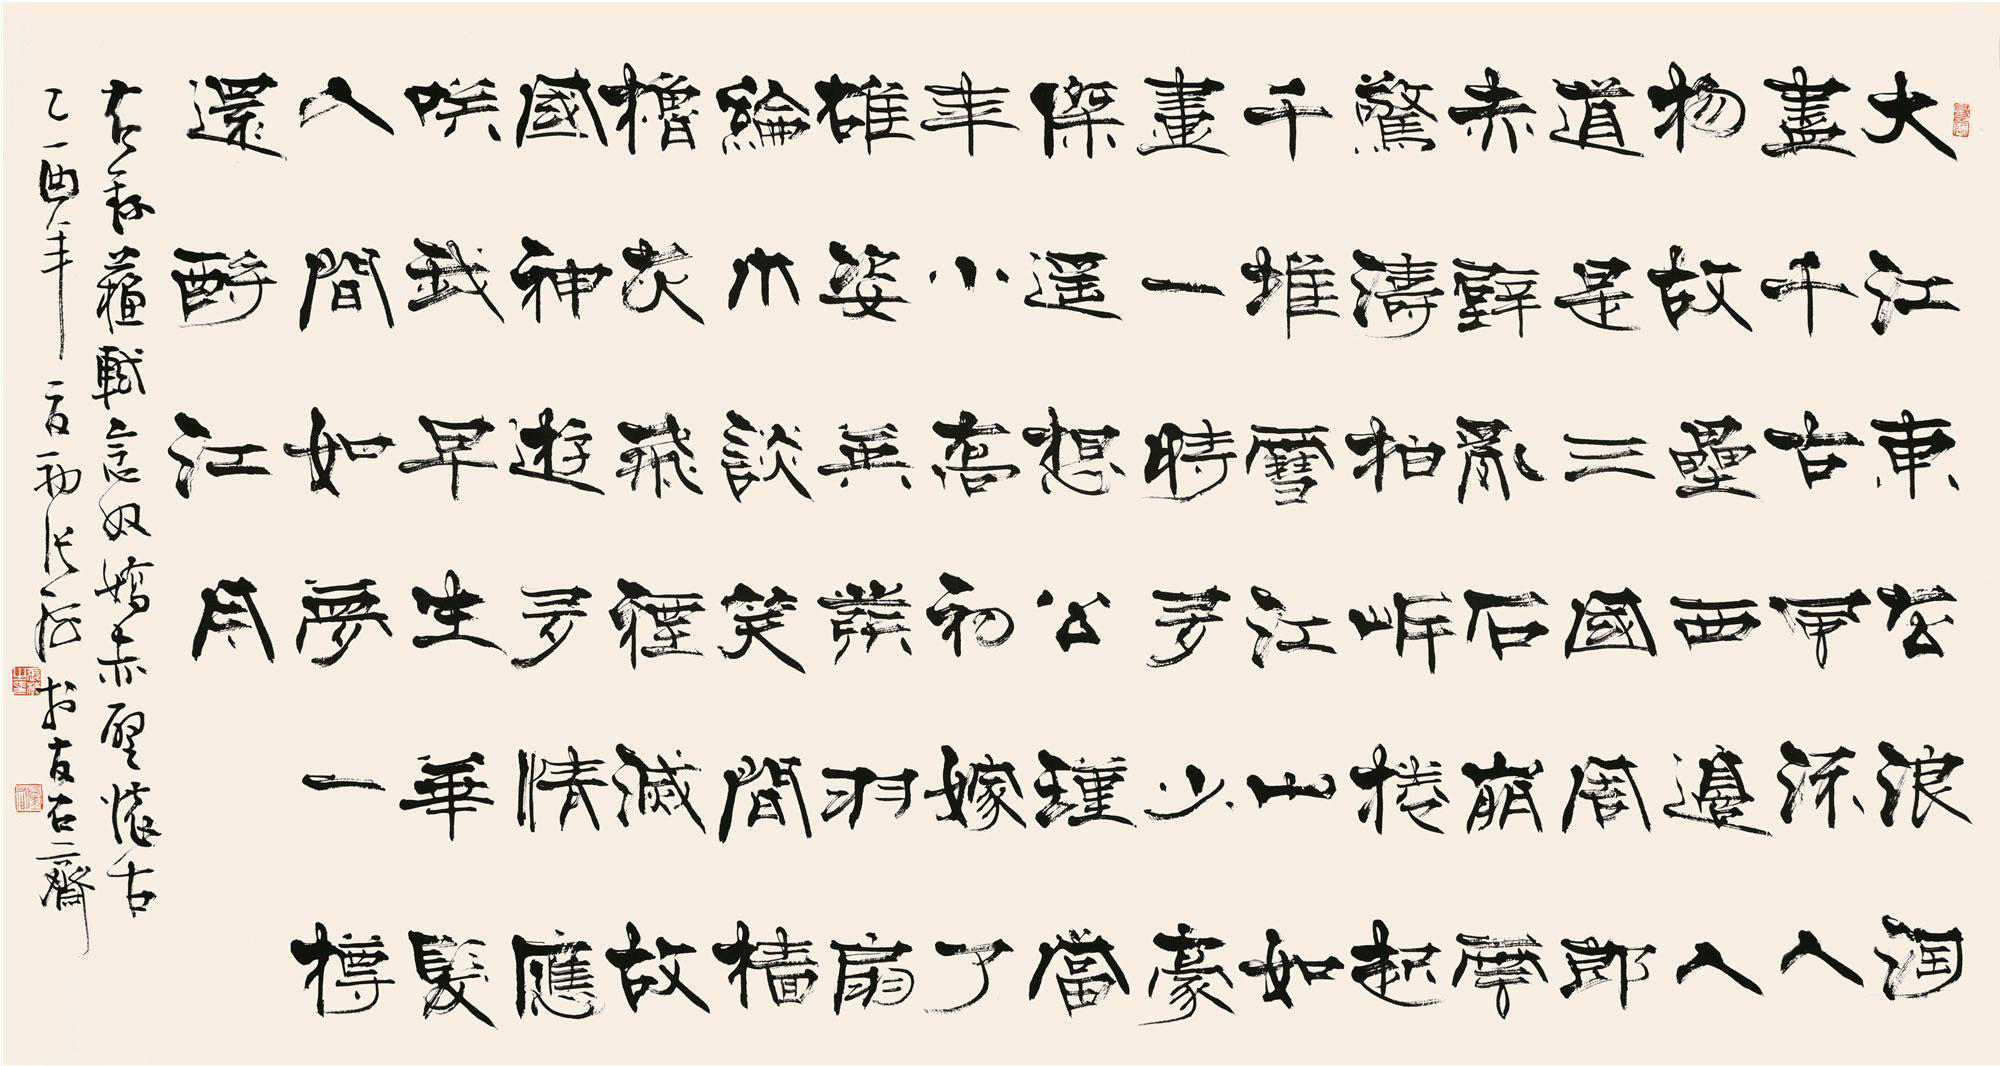 大江東去浪淘
盡千古風流人
物故壘西邊人
道是三國周郎
赤壁亂石崩雲
驚濤拍岸捲起
千堆雪江山如
畫一時多少豪
傑遥想公瑾當
年小喬初嫁了
雄姿英發羽扇
綸巾談笑間檣
櫓灰飛煙滅故
國神遊多情應
咲我早生華髮
人間如夢一樽
還酹江月
右録蘇軾念奴嬌赤壁懷古
乙酉年初張海於石齋